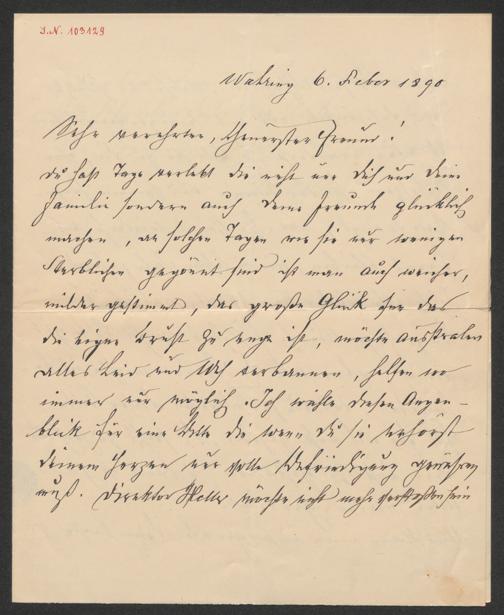 I.N. 103129
Währing 6. Feber 1890
Sehr verehrter, theuerster Freund!
Du hast Tage verlebt die nicht nur Dich und Deine
Familie sondern auch Deine Freunde glücklich
machen, an solchen Tagen wie sie nur wenigen
Sterblichen gegönnt sind ist man auch weicher,
milder gestimmt, das große Glück für das
die eigne Brust zu enge ist, möchte ausstralen
alles Leid und Weh verbannen, helfen wo
immer nur möglich. Ich wähle diesen Augen-
blick für eine Bitte die wenn Du sie erhörst
Deinem Herzen nur volle Befriedigung gewähren
muß. Direktor möchte nicht mehr verstoßen sein